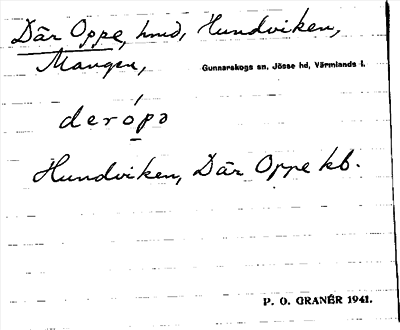 Där Oppe, hmd, Hundviken,
Mangen,
Gunnarskogs sn, Jösse hd, Värmlands l.
derópə
Hundviken, Där Oppe kb.
P. O. GRANÉR 1941.